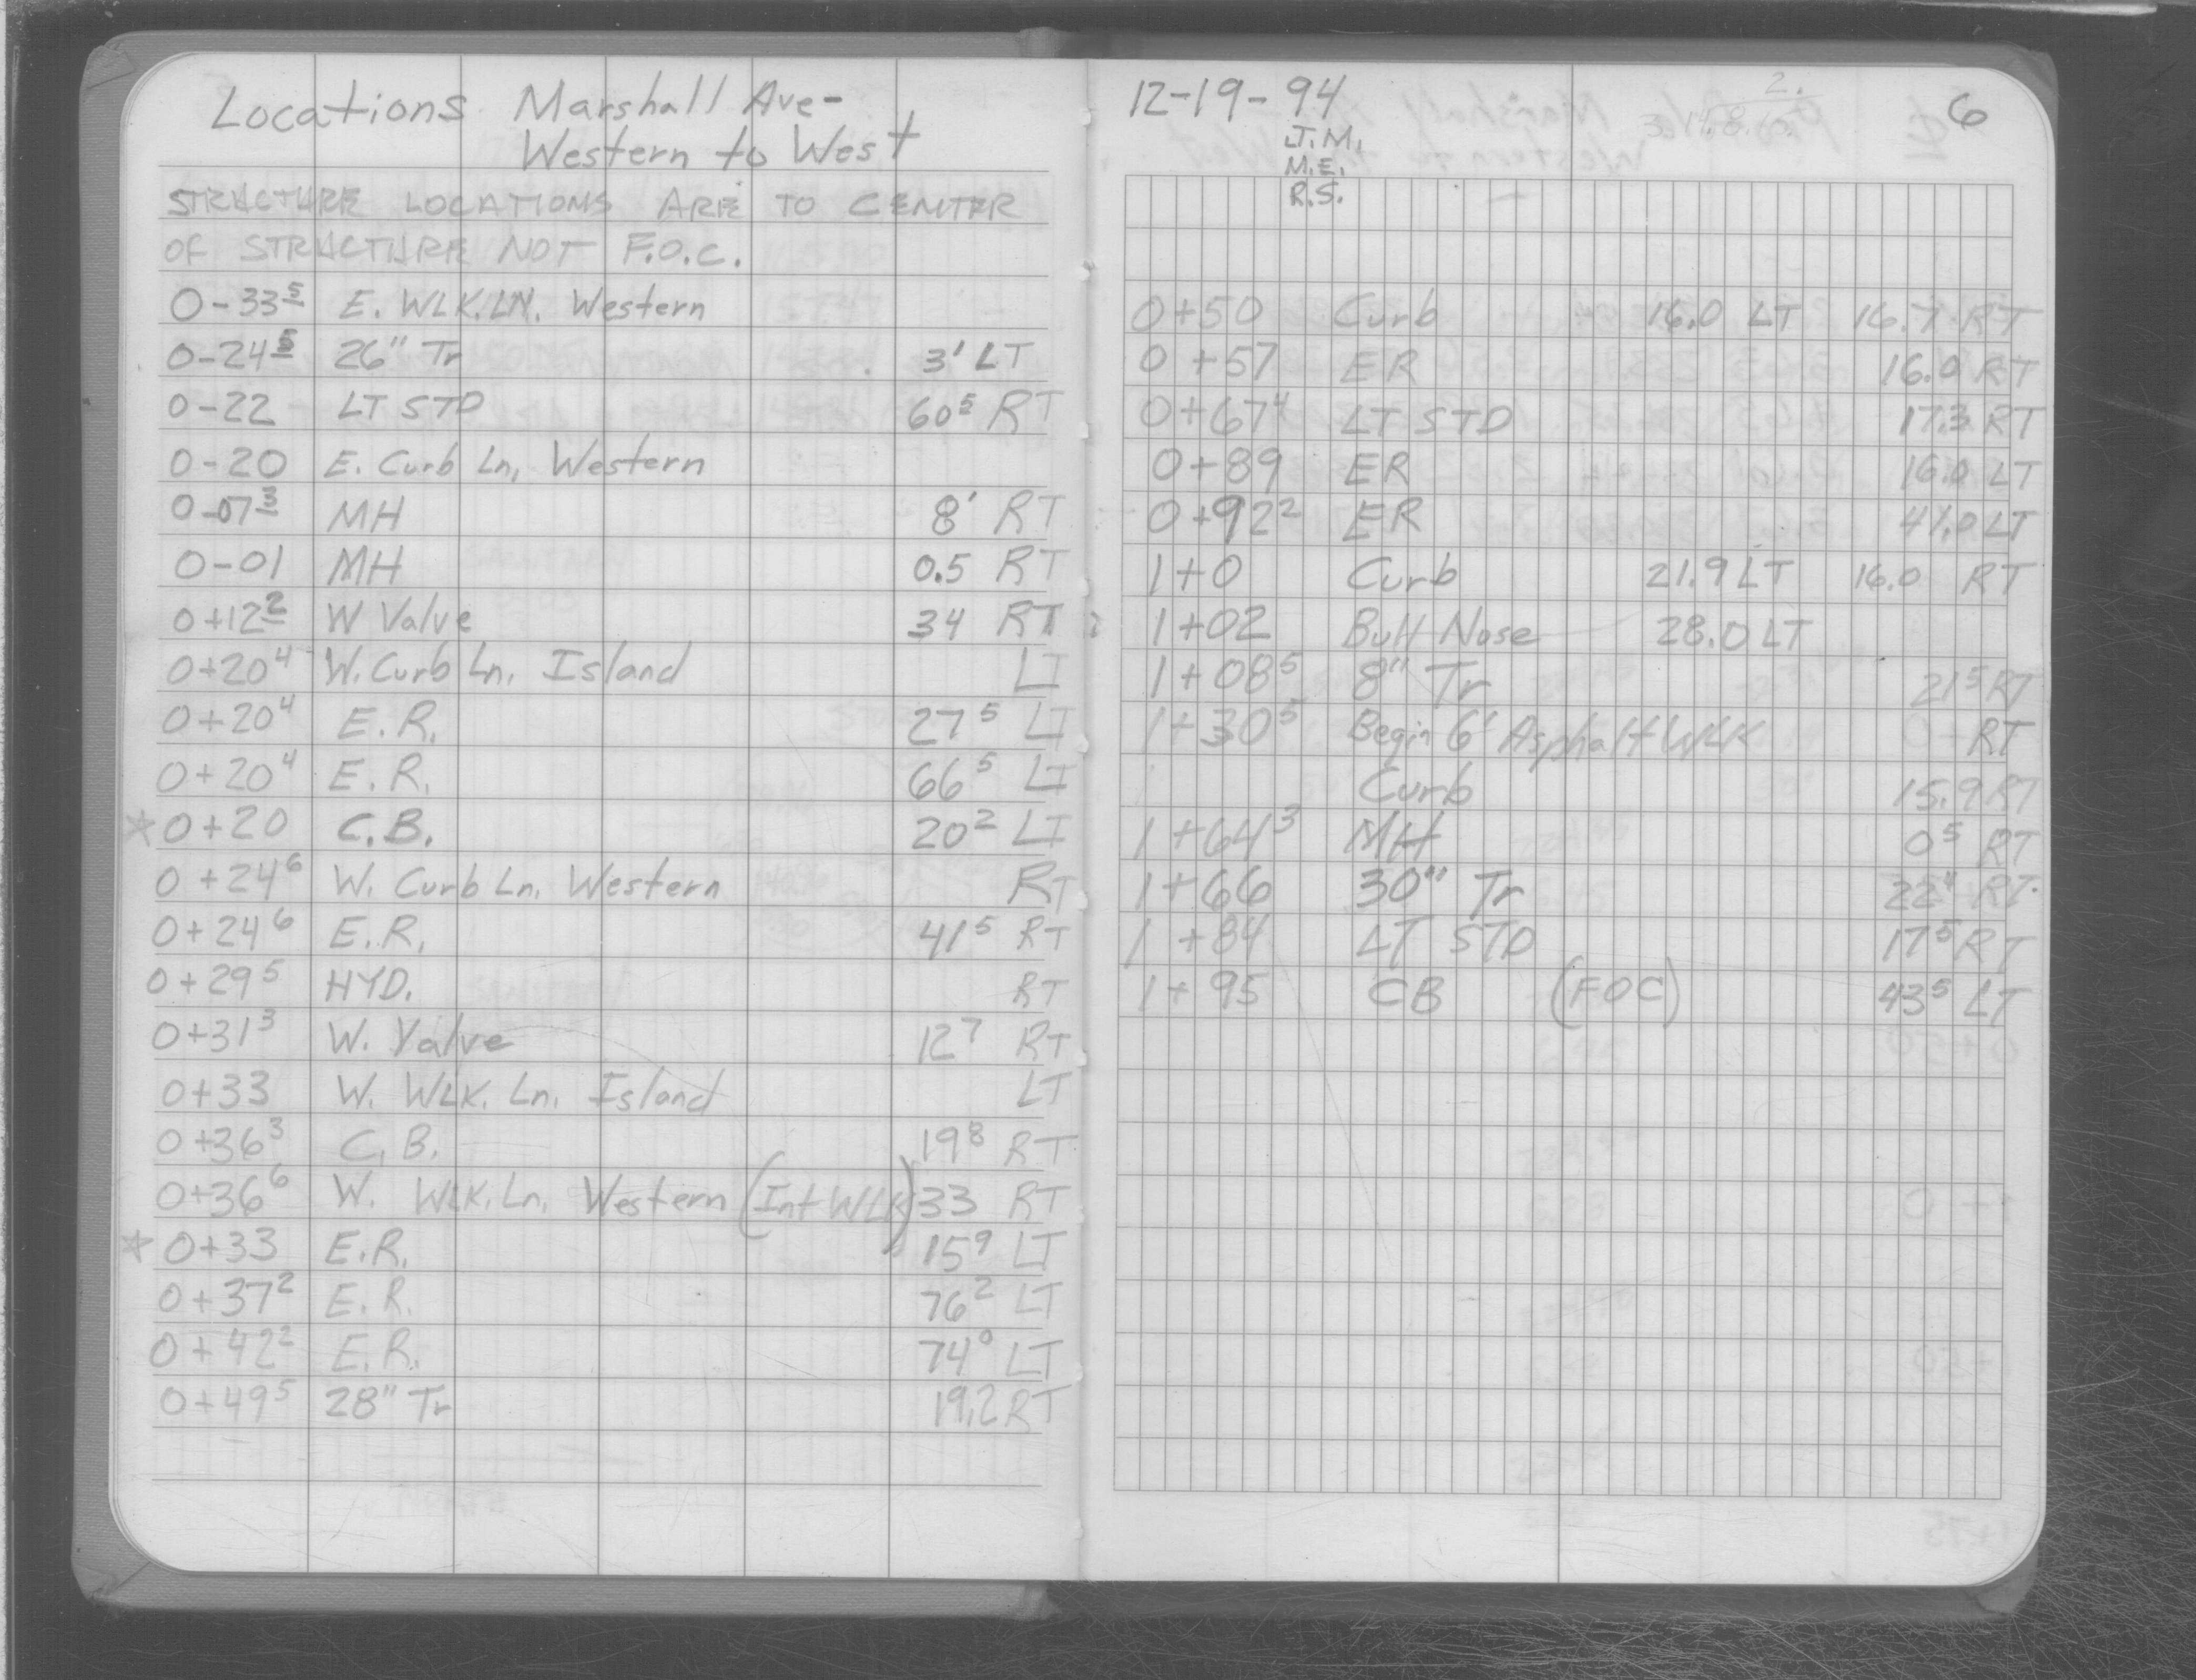 Locations Marshall Ave-
Western to West
STRUCTURE LOCATIONS ARE TO CENTER
OF STRUCTURE NOT F.O.C.
0-33⁵ E. WLK. LN. Western
0-24⁵ 26" Tr 3' LT
0-22 LT STD 60⁵ RT
0-20 E. Curb Ln, Western
0-07³ MH 8' RT
0-01 MH 0.5 RT
0+12² W Valve 34 RT
0+20⁴ W. Curb Ln. Island LT
0+20⁴ E.R. 27⁵ LT
0+20⁴ E.R. 66⁵ LT
*0+20 C.B. 20² LT
0+24⁶ W. Curb Ln. Western RT
0+24⁶ E.R. 41⁵ RT
0+29⁵ HYD. RT
0+31³ W. Valve 12⁷ RT
0+33 W. WLK. Ln. Island LT
0+36³ C.B. 19⁸ RT
0+36⁶ W. WLK. Ln. Western (Int WLK) 33 RT
*0+33 E.R. 15⁹ LT
0+37² E.R. 76² LT
0+42² E.R. 74⁰ LT
0+49⁵ 28" Tr 19.2 RT
12-19-94 6
J.M.
M.E.
R.S.
0+50 Curb 16.0 LT 16.7 RT
0+57 ER 16.0 RT
0+67⁴ LT STD 17.3 RT
0+89 ER 16.0 LT
0+92² ER 41.0 LT
1+0 Curb 21.9 LT 16.0 RT
1+02 Bull Nose 28.0 LT
1+08⁵ 8" Tr 21⁵ RT
1+30⁵ Begin 6' Asphalt WLK RT
Curb 15.9 RT
1+64³ MH 0⁵ RT
1+66 30" Tr 22⁴ RT
1+84 LT STD 17⁵ RT
1+95 CB (FOC) 43⁵ LT